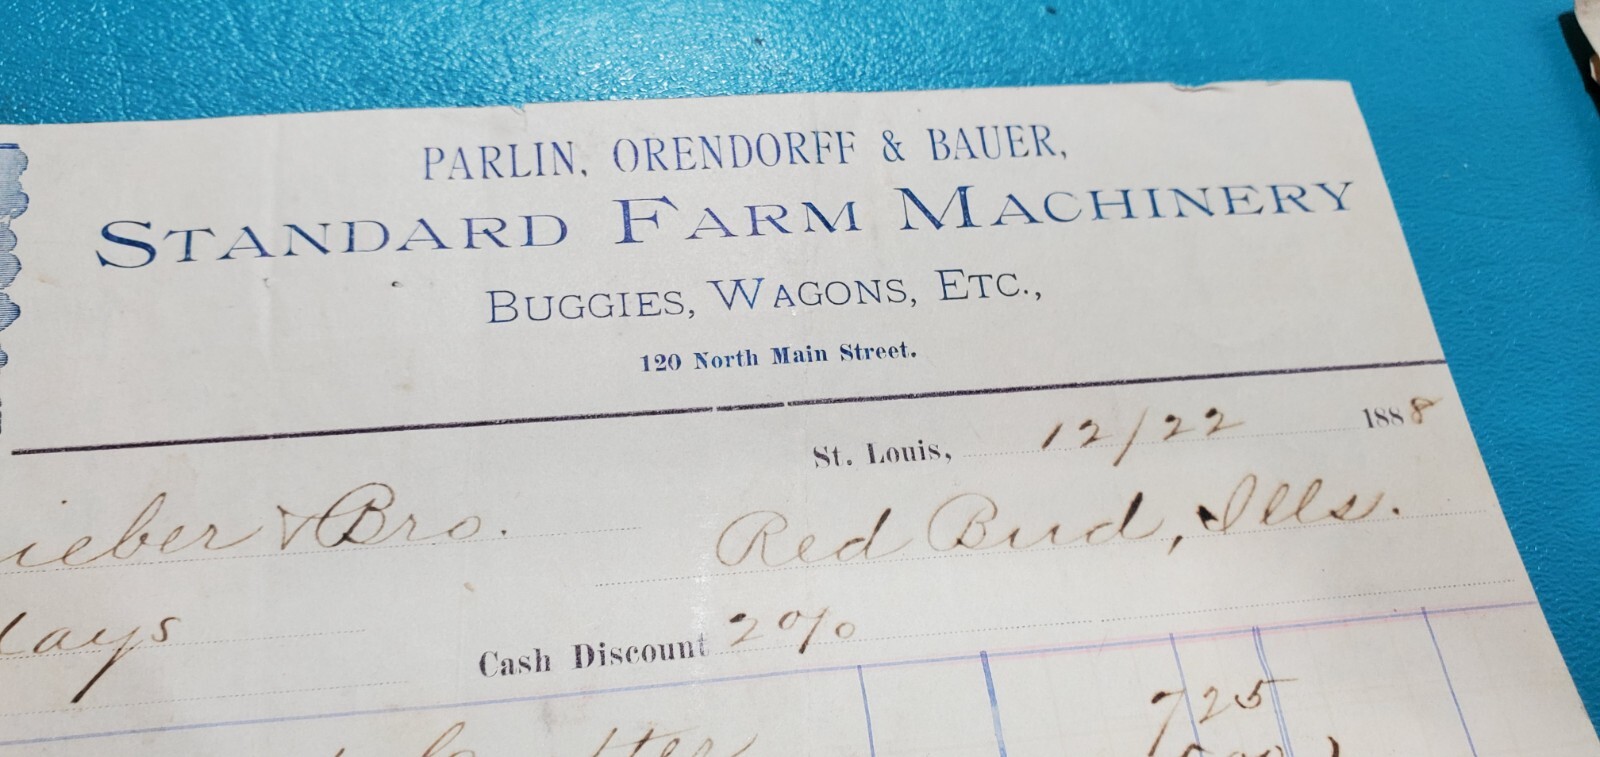 PARLIN, ORENDORFF & BAUER,
STANDARD FARM MACHINERY
BUGGIES, WAGONS, ETC.,
120 North Main Street.
St. Louis, 12/22 1888
ieber & Bro. Red Bud, Ills.
days Cash Discount 2%
725